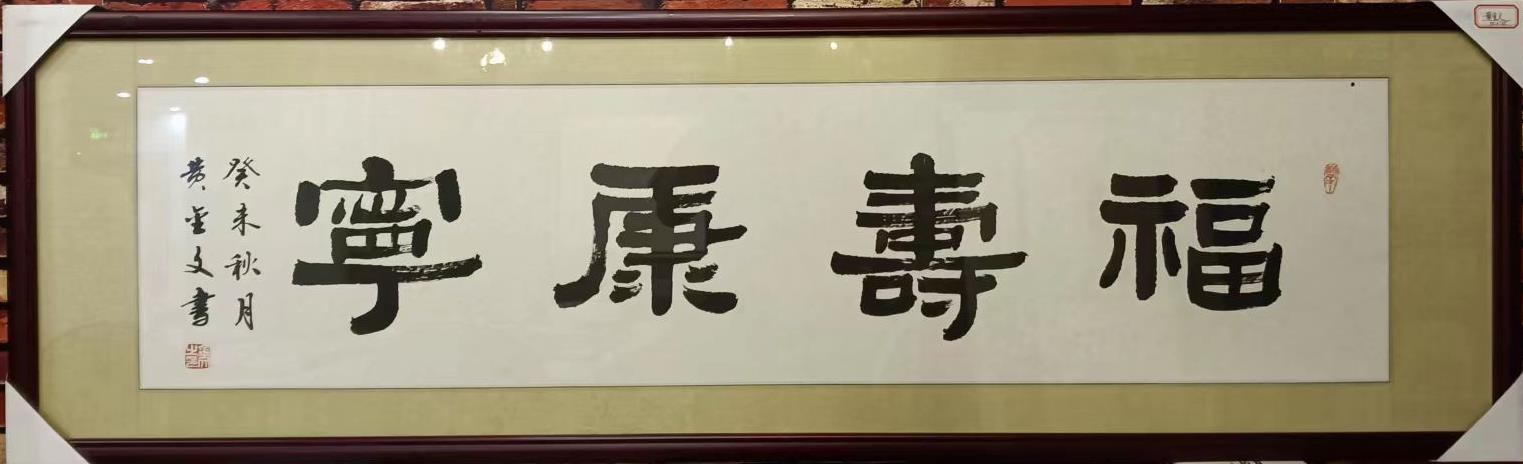 福壽康寧
癸未秋月
黄金文書